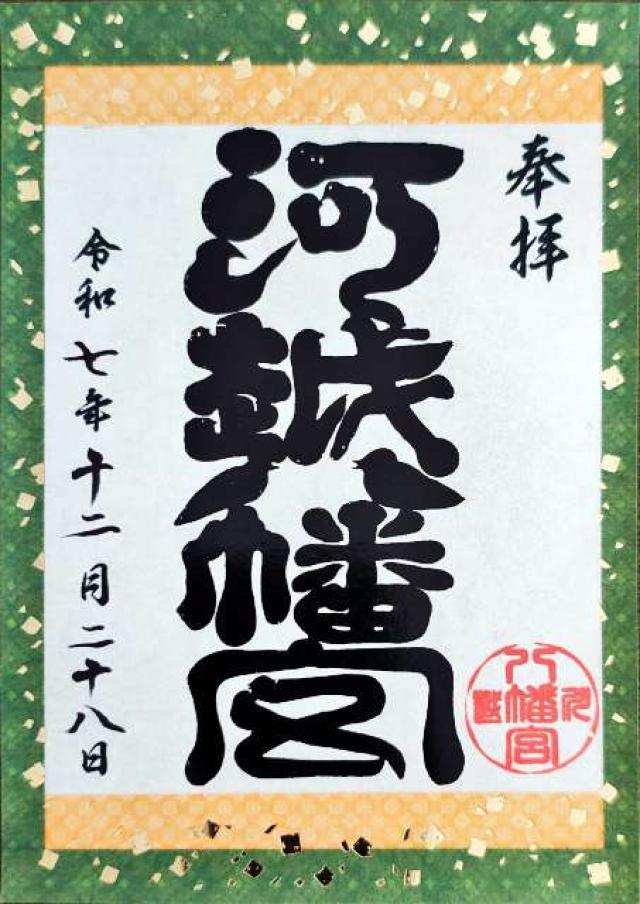 奉拝
河越八幡宮
令和七年十二月二十八日
八幡宮
川越